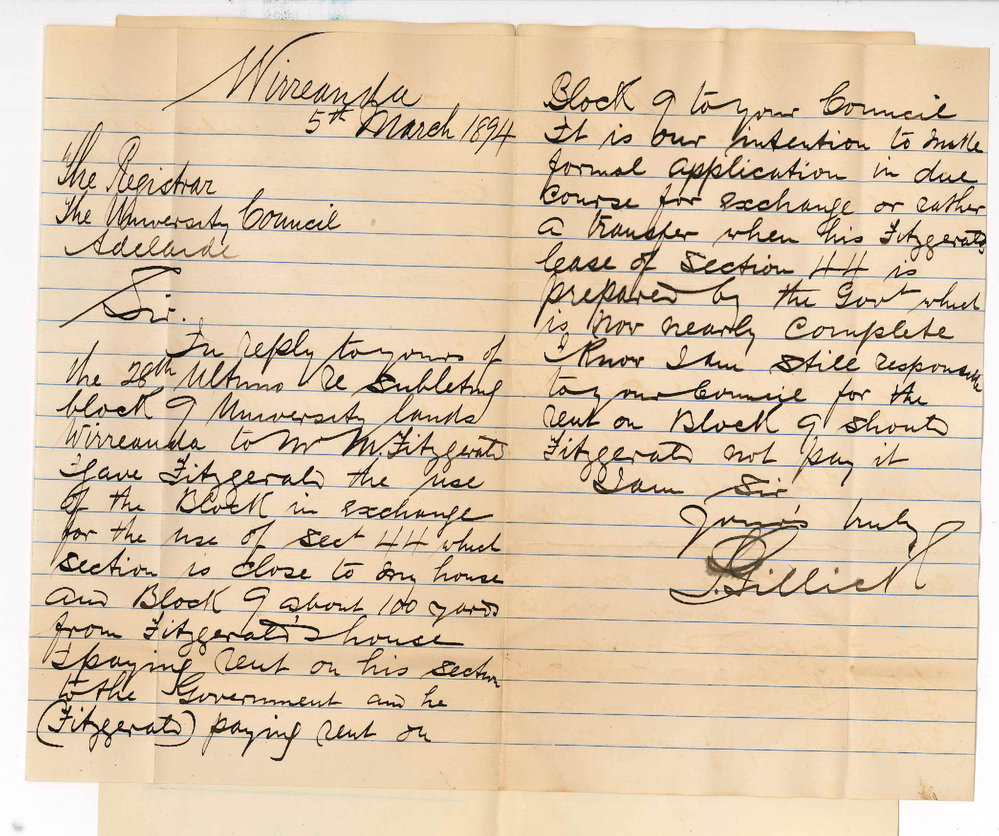 Wirreanda
5th March 1894
The Registrar
The University Council
Adelaide
Sir.
In reply to yours of
the 28th Ultimo re Subletting
block 9 University lands
Wirreanda to Mr M. Fitzgerald
I gave Fitzgerald the use
of the Block in exchange
for the use of sect 44 which
section is close to my house
and Block 9 about 100 yards
from Fitzgerald's house
I paying rent on his section
to the Government and he
(Fitzgerald) paying rent on
Block 9 to your Council
It is our intention to make
formal application in due
course for exchange or rather
a transfer when his Fitzgeralds
lease of Section 44 is
prepared by the Govt which
is now nearly complete
I know I am still responsible
to your Council for the
rent on Block 9 should
Fitzgerald not pay it
I am Sir
Yours truly
J. Gillick